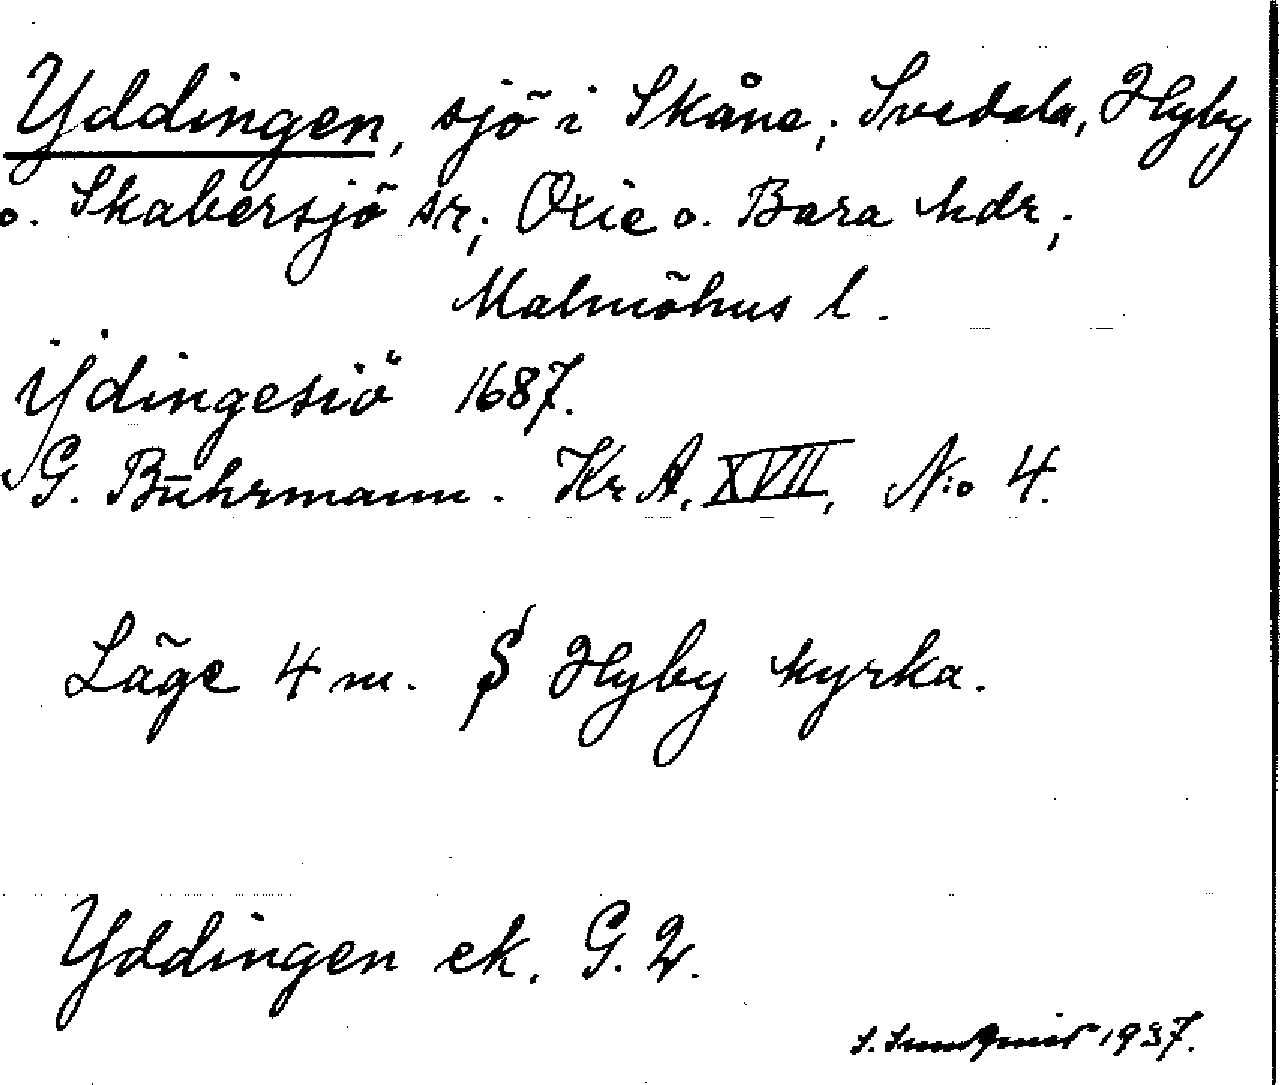 Yddingen, sjö i Skåne; Svedala, Hyby
o. Skabersjö sr; Oxie o. Bara hdr;
Malmöhus l.
Ÿdingesiö 1687.
G. Buhrmann. Kr A, XVII, N:o 4.
Läge 4 m. S Hyby kyrka.
Yddingen ek. G. 2.
S. Sundqvist 1937.